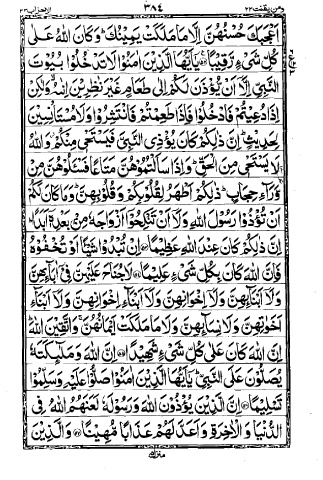 ومن یقنت ۲۲ ۳۸۴ الاحزاب ۳۳
اَعْجَبَكَ حُسْنُهُنَّ اِلَّا مَا مَلَكَتْ يَمِيْنُكَ ؕ وَ كَانَ اللّٰهُ عَلٰى
كُلِّ شَيْءٍ رَّقِيْبًا يٰۤاَيُّهَا الَّذِيْنَ اٰمَنُوْا لَا تَدْخُلُوْا بُيُوْتَ
النَّبِيِّ اِلَّاۤ اَنْ يُّؤْذَنَ لَكُمْ اِلٰى طَعَامٍ غَيْرَ نٰظِرِيْنَ اِنٰىهُ ۙ وَ لٰكِنْ
اِذَا دُعِيْتُمْ فَادْخُلُوْا فَاِذَا طَعِمْتُمْ فَانْتَشِرُوْا وَ لَا مُسْتَاْنِسِيْنَ
لِحَدِيْثٍ ؕ اِنَّ ذٰلِكُمْ كَانَ يُؤْذِى النَّبِيَّ فَيَسْتَحْيٖ مِنْكُمْ ؗ وَ اللّٰهُ
لَا يَسْتَحْيٖ مِنَ الْحَقِّ ؕ وَ اِذَا سَاَلْتُمُوْهُنَّ مَتَاعًا فَسْـَٔلُوْهُنَّ مِنْ
وَّرَآءِ حِجَابٍ ؕ ذٰلِكُمْ اَطْهَرُ لِقُلُوْبِكُمْ وَ قُلُوْبِهِنَّ ؕ وَ مَا كَانَ لَكُمْ
اَنْ تُؤْذُوْا رَسُوْلَ اللّٰهِ وَ لَاۤ اَنْ تَنْكِحُوْۤا اَزْوَاجَهٗ مِنْۢ بَعْدِهٖۤ اَبَدًا ؕ
اِنَّ ذٰلِكُمْ كَانَ عِنْدَ اللّٰهِ عَظِيْمًا اِنْ تُبْدُوْا شَيْـًٔا اَوْ تُخْفُوْهُ
فَاِنَّ اللّٰهَ كَانَ بِكُلِّ شَيْءٍ عَلِيْمًا لَا جُنَاحَ عَلَيْهِنَّ فِيْۤ اٰبَآىِٕهِنَّ
وَ لَاۤ اَبْنَآىِٕهِنَّ وَ لَاۤ اِخْوَانِهِنَّ وَ لَاۤ اَبْنَآءِ اِخْوَانِهِنَّ وَ لَاۤ اَبْنَآءِ
اَخَوٰتِهِنَّ وَ لَا نِسَآىِٕهِنَّ وَ لَا مَا مَلَكَتْ اَيْمَانُهُنَّ ۚ وَ اتَّقِيْنَ اللّٰهَ ؕ
اِنَّ اللّٰهَ كَانَ عَلٰى كُلِّ شَيْءٍ شَهِيْدًا اِنَّ اللّٰهَ وَ مَلٰٓىِٕكَتَهٗ
يُصَلُّوْنَ عَلَى النَّبِيِّ ؕ يٰۤاَيُّهَا الَّذِيْنَ اٰمَنُوْا صَلُّوْا عَلَيْهِ وَ سَلِّمُوْا
تَسْلِيْمًا اِنَّ الَّذِيْنَ يُؤْذُوْنَ اللّٰهَ وَ رَسُوْلَهٗ لَعَنَهُمُ اللّٰهُ فِى
الدُّنْيَا وَ الْاٰخِرَةِ وَ اَعَدَّ لَهُمْ عَذَابًا مُّهِيْنًا وَ الَّذِيْنَ